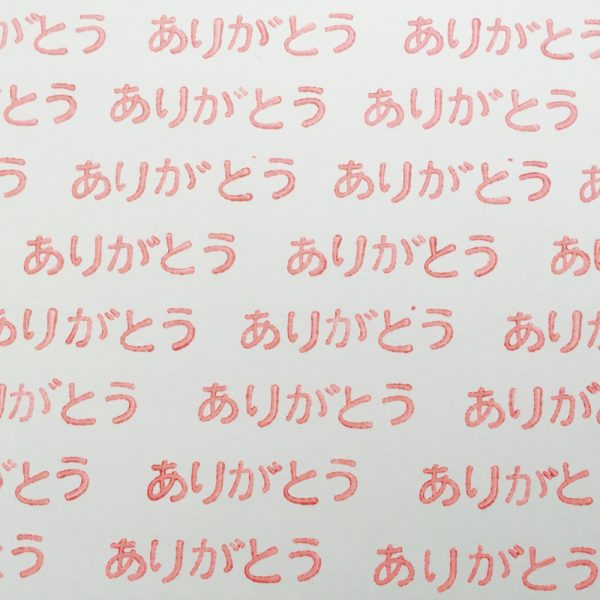 がとう ありがとう ありがとう
とう ありがとう ありがとう
う ありがとう ありがとう あ
ありがとう ありがとう あり
ありがとう ありがとう ありが
りがとう ありがとう ありが
とう ありがとう ありがと
う ありがとう ありがとう